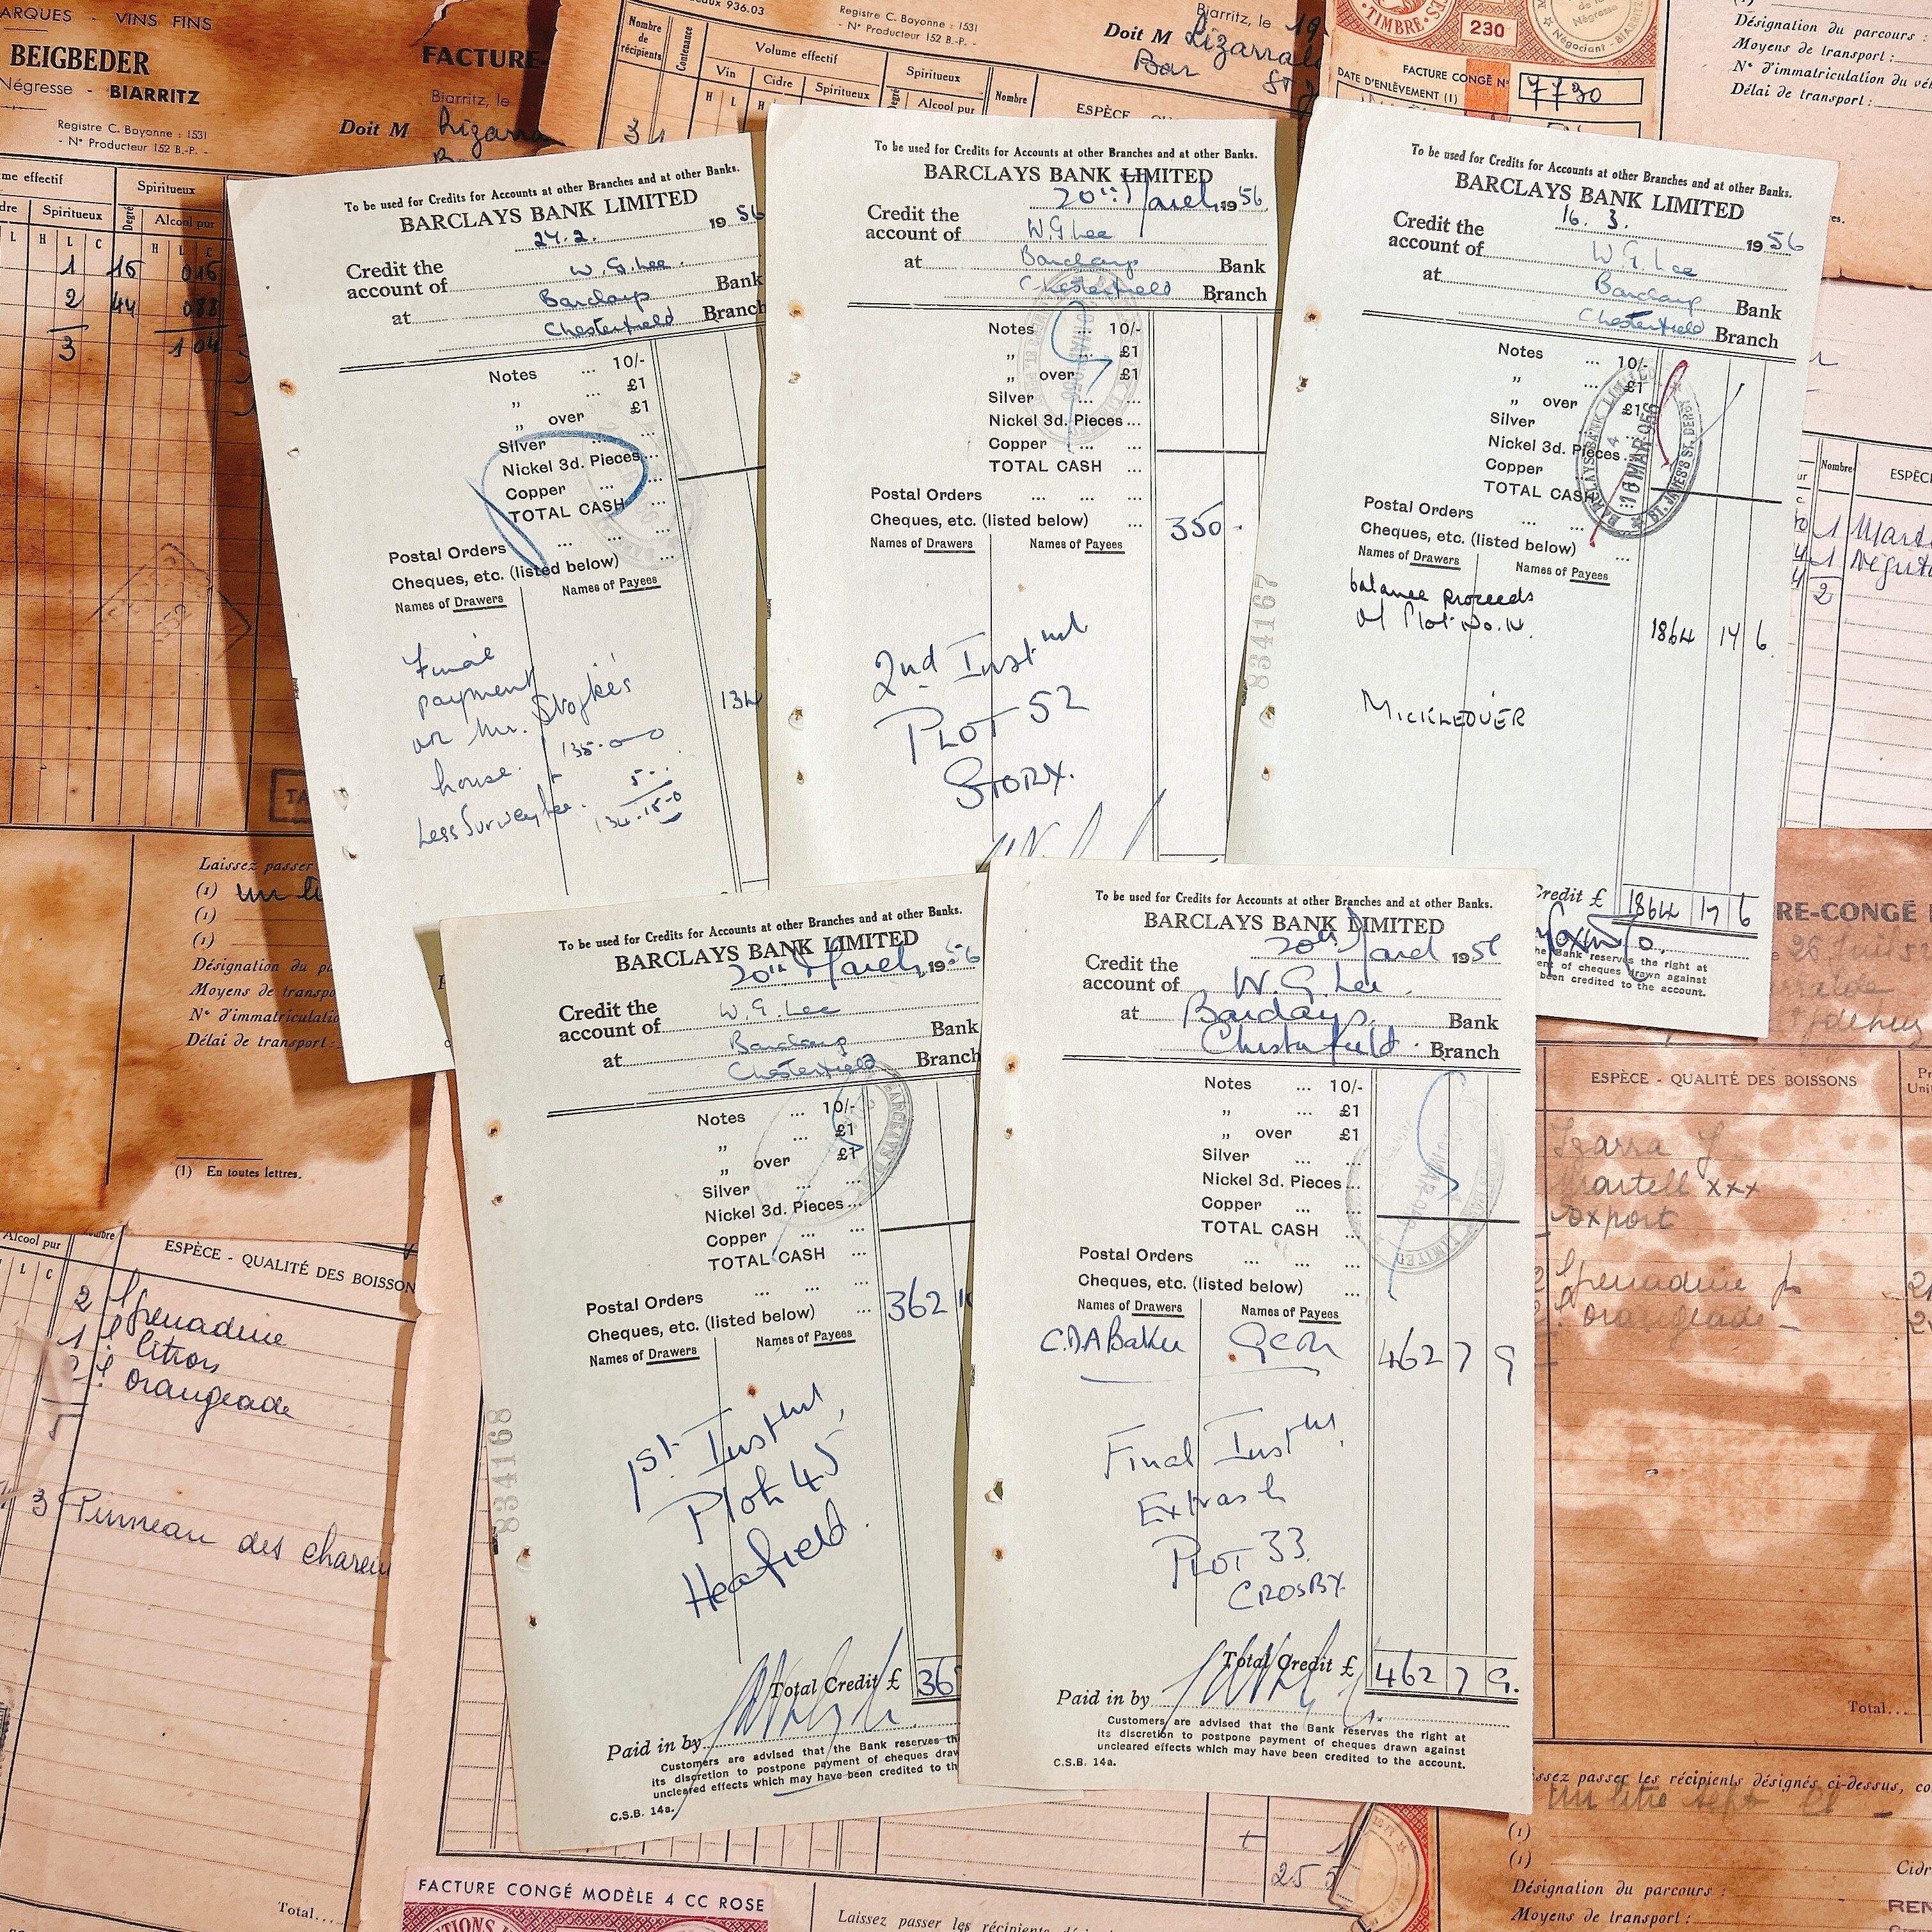 ARQUES - VINS FINS
BEIGBEDER
Négresse - BIARRITZ
Registre C. Bayonne : 1531
- N° Producteur 152 B.-P. -
FACTURE-
Biarritz, le
Doit M
me effectif
Spiritueux
Spiritueux
Degré
Alcool pur
L H L C H L C
1 15 015
2 44 088
3 104
936.03
Registre C. Bayonne : 1531
- N° Producteur 152 B.-P. -
Biarritz, le 19
Doit M Lizarral
Bar
Nombre
de
récipients
Contenance
Volume effectif
Vin Cidre Spiritueux
Spiritueux
Alcool pur
Nombre
TIMBRE
230
Négresse
Négociant - BIARRITZ
FACTURE CONGÉ N° 7730
DATE D'ENLÈVEMENT (1)
Désignation du parcours :
Moyens de transport :
N° d'immatriculation du véh
Délai de transport :
To be used for Credits for Accounts at other Branches and at other Banks.
BARCLAYS BANK LIMITED
24.2. 19 56
Credit the
account of W.G. Lee.
at Barclays Bank
Chesterfield Branch
Notes ... 10/-
" ... £1
" over £1
Silver ... ...
Nickel 3d. Pieces...
Copper ... ...
TOTAL CASH ...
Postal Orders ... ... ...
Cheques, etc. (listed below) ...
Names of Drawers Names of Payees
Final
payment
on Mr.
house. 135.0-0
Less Survey fee. 5-.
134.15-0
134
To be used for Credits for Accounts at other Branches and at other Banks.
BARCLAYS BANK LIMITED
20th March 19 56
Credit the
account of W.G Lee
at Barclays Bank
Chesterfield Branch
Notes ... 10/-
" ... £1
" over £1
Silver ... ...
Nickel 3d. Pieces...
Copper ... ...
TOTAL CASH ...
Postal Orders ... ... ...
Cheques, etc. (listed below) ... 350 -
Names of Drawers Names of Payees
2nd Instmnt
PLOT 52
STORY.
To be used for Credits for Accounts at other Branches and at other Banks.
BARCLAYS BANK LIMITED
16. 3. 19 56
Credit the
account of W G. Lee
at Barclays Bank
Chesterfield Branch
Notes ... 10/-
" ... £1
" over £1
Silver ...
Nickel 3d. Pieces...
Copper ...
TOTAL CASH
BARCLAYS BANK LIMITED
16 MAR 056
ST. JAMES'S ST. DERBY
Postal Orders ... ...
Cheques, etc. (listed below) ...
Names of Drawers Names of Payees
balance proceeds
of Plot No. 14. 1864 17 6.
MICKLEOVER
834167
Credit £ 1864 17 6
the Bank reserves the right at
ent of cheques drawn against
been credited to the account.
Nombre ESPÈCE
Laissez passer
(1)
(1)
(1)
Désignation du pa
Moyens de transpo
N° d'immatriculatio
Délai de transport :
(1) En toutes lettres.
Alcool pur
L C
ESPÈCE - QUALITÉ DES BOISSON
2 grenadine
1 citron
orangeade
3 Pinneau des charen
Total....
To be used for Credits for Accounts at other Branches and at other Banks.
BARCLAYS BANK LIMITED
20th March, 19 56
Credit the
account of W. G. Lee
at Barclays Bank
Chesterfield Branch
Notes ... 10/-
" ... £1
" over £1
Silver ... ...
Nickel 3d. Pieces...
Copper ... ...
TOTAL CASH ...
Postal Orders ... ... ...
Cheques, etc. (listed below) ... 362 10
Names of Drawers Names of Payees
834168
1st. Instmnt,
Plot 45
Heafield.
Total Credit £ 36
Paid in by
Customers are advised that the Bank reserves th
its discretion to postpone payment of cheques draw
uncleared effects which may have been credited to th
C.S.B. 14a.
To be used for Credits for Accounts at other Branches and at other Banks.
BARCLAYS BANK LIMITED
20th March 19 56
Credit the
account of W. G. Lee.
at Barclays. Bank
Chesterfield. Branch
Notes ... 10/-
" ... £1
" over £1
Silver ... ...
Nickel 3d. Pieces...
Copper ... ...
TOTAL CASH ...
Postal Orders ... ... ...
Cheques, etc. (listed below) ...
Names of Drawers Names of Payees
C.D.A Baker 462 7 9
Final Instmnt,
Extras &
PLOT 33.
CROSBY.
Total Credit £ 462 7 9.
Paid in by
Customers are advised that the Bank reserves the right at
its discretion to postpone payment of cheques drawn against
uncleared effects which may have been credited to the account.
C.S.B. 14a.
RE-CONGÉ
ESPÈCE - QUALITÉ DES BOISSONS
Izarra J
Martell xxx
Export
grenadine
orangeade
Total...
ssez passer les récipients désignés ci-dessus, co
(1)
(1)
Désignation du parcours :
Moyens de transport :
255
FACTURE CONGÉ MODÈLE 4 CC ROSE
Laissez passer les récipients